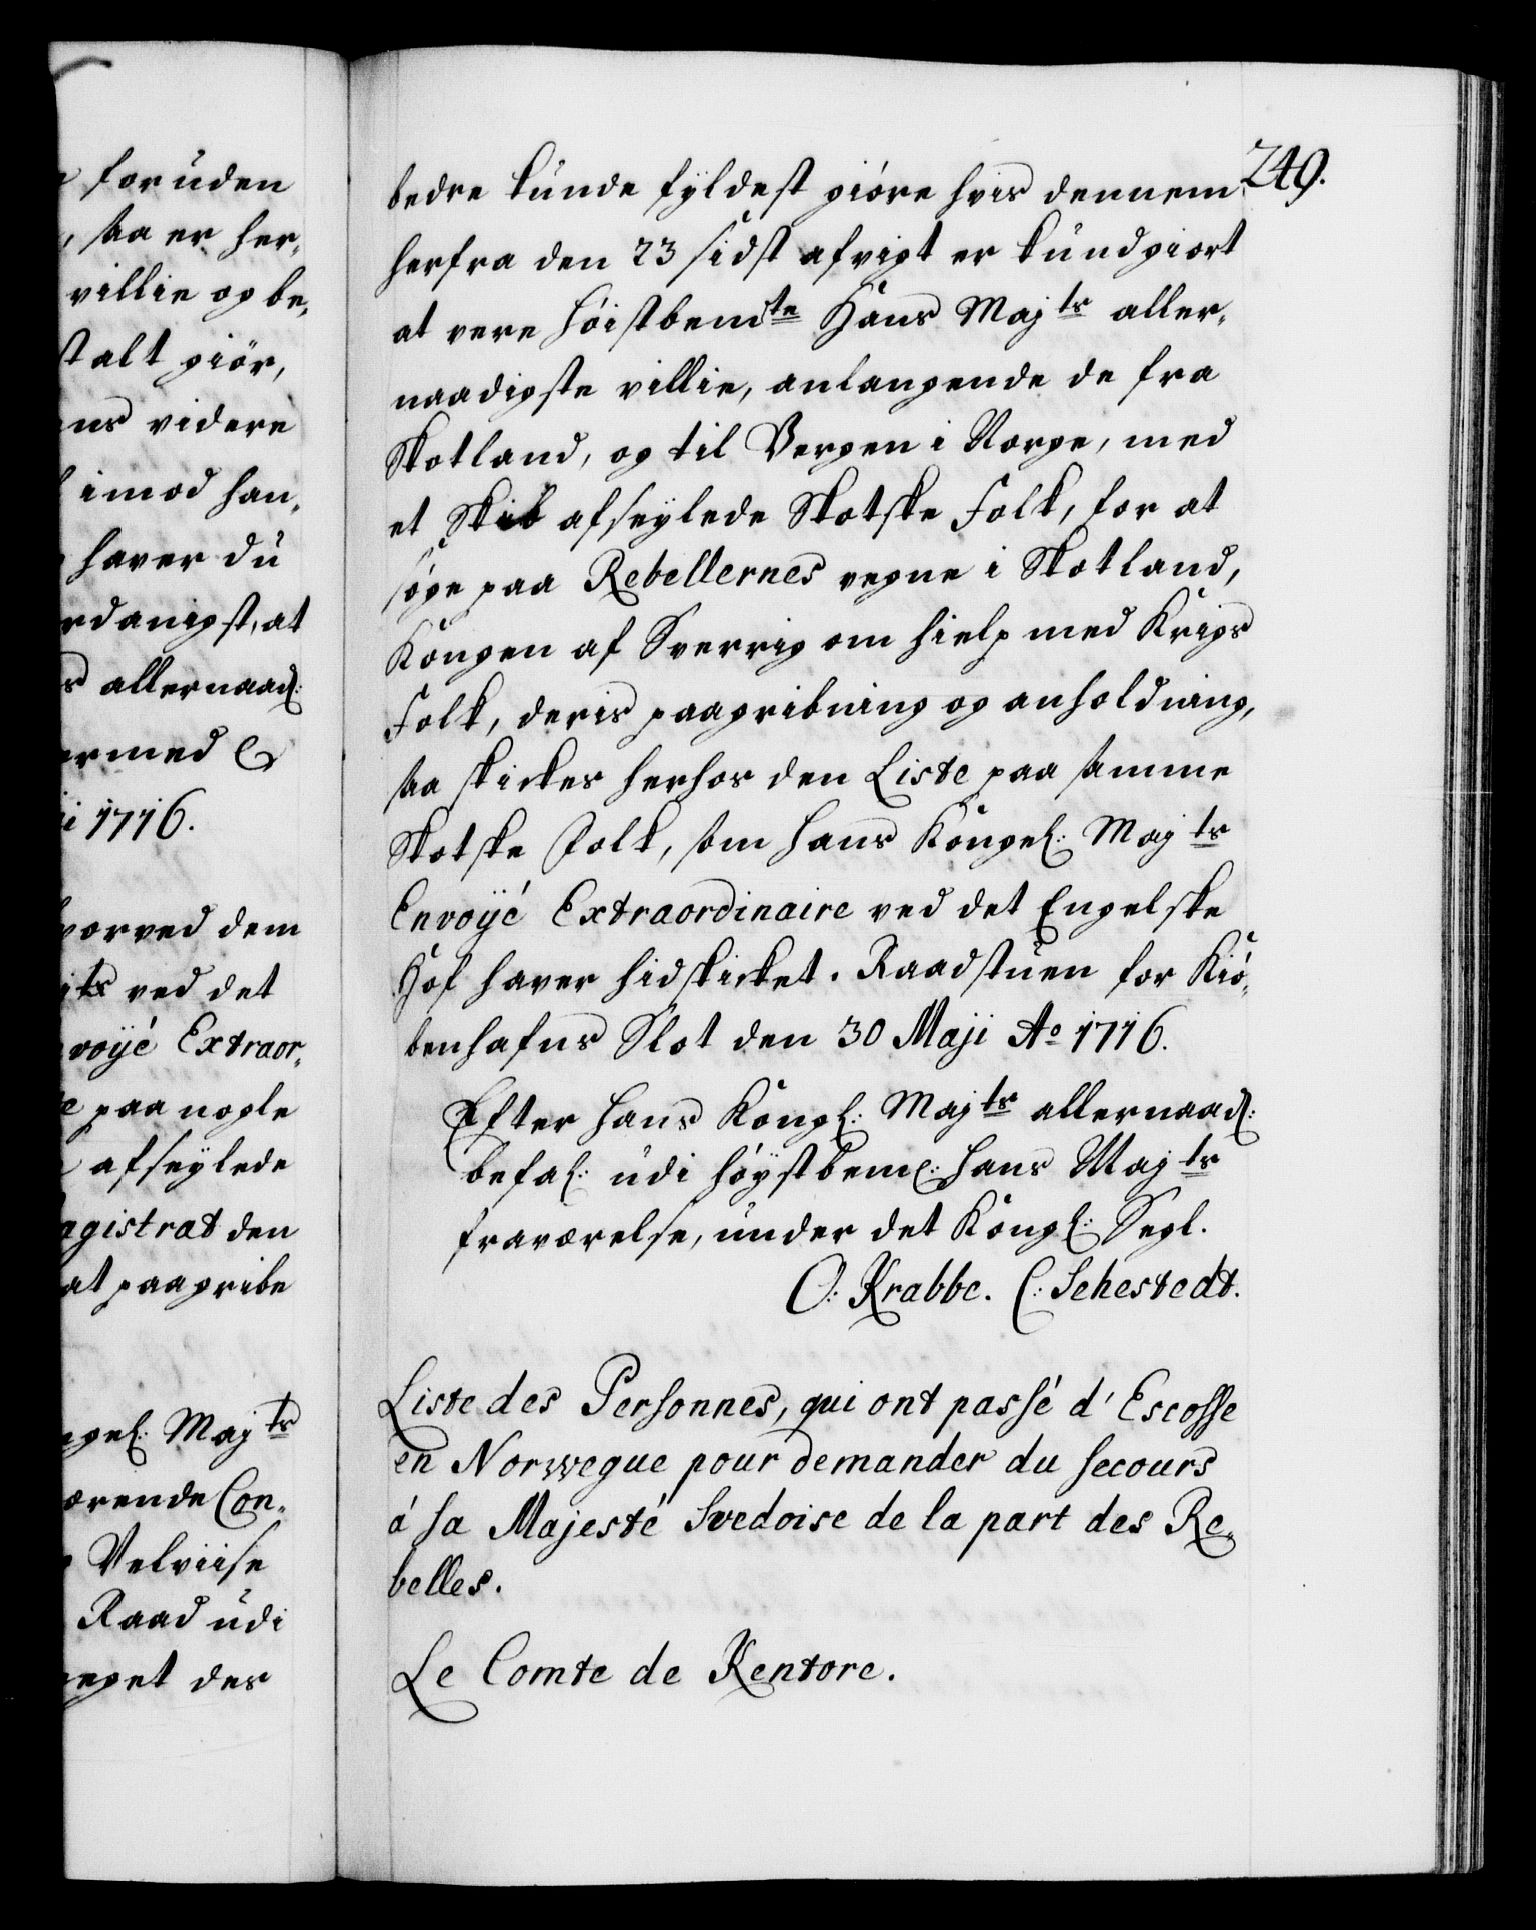 foruden
, saa er her„
villie og be„
stalt giör,
ens videre
imod han„
haver du
rdanigst, at
s allernaad:
ermed &
ii 1716.
horved dem
jts ved det
voÿé Extraor„
e paa nogle
afseÿlede
agistrat den
at paagribe
ngel: Majts
ærende Con„
Velviise
Raad udi
neget des
249.
bedre kunde fÿldest giöre hvis dennem
herfra den 23 sidst afvigt er kundgiort
at vere höistbemte Hans Majts aller„
naadigste villie, anlangende de fra
Skotland, og til Bergen i Norge, med
et Skib afseÿlede Skotske Folk, for at
söge paa Rebellernes vegne i Skotland,
Kongen af Sverrig om hielp med Krigs
Folk, deris paagribning og anholdning,
saa skickes herhos den Liste paa samme
Skotske Folk, som hans Kongel: Majts
Envoÿé Extraordinaire ved det Engelske
Hof haver hidskicket. Raadstuen for Kiö„
benhafns Slot den 30 Maji Ao 1716.
Efter hans Kongl: Majts allernaad:
befal: udi höÿstbem: hans Majts
fraværelse, under det Kongl: Segl.
O: Krabbe. C: Sehestedt.
Liste des Personnes, qui ont passé d'Escosse
en Norwegue pour demander du secours
á sa Majesté Svedoise de la part des Re„
belles.
Le Comte de Kentore.